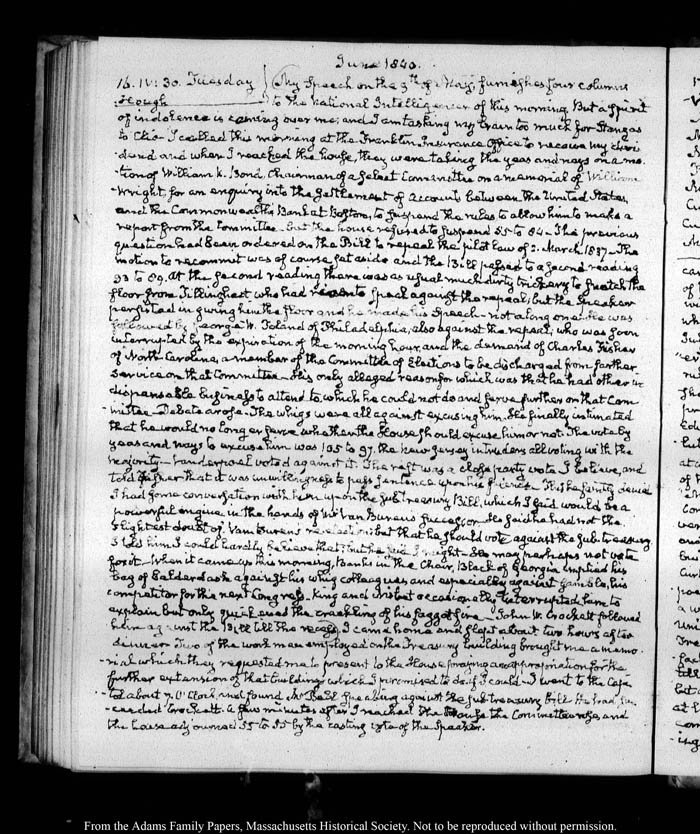 June 1840.
16. IV: 30. Tuesday } My Speech on the 3rd of May, furnishes four columns
Hough to the National Intelligencer of this morning. But a spirit
of indolence is coming over me, and I am tasking my brain too much for Stanzas
to Clio. I called this morning at the Franklin Insurance Office to receive my divi-
dend and when I reached the house, they were taking the yeas and nays on a mo-
tion of William K. Bond, Chairman of a Select Committee on a memorial of William
Wright, for an enquiry into the Settlement of accounts between the United States,
and the Commonwealth Bank at Boston, to suspend the rules to allow him to make a
report from the Committee. but the house refused to suspend 55 to 84. The previous
question had been ordered on the Bill to repeal the pilot law of 2. March 1837. The
motion to recommit was of course set aside and the Bill passed to a second reading
93 to 89. At the second reading there was as usual much dirty trickery to snatch the
floor from Tillinghast who had risen to speak against the repeal; but the Speaker
persisted in giving him the floor and he made his Speech - not a long one. He was
followed by George W. Toland of Philadelphia, also against the repeal, who was soon
interrupted by the expiration of the morning hour, and the demand of Charles Fisher
of North-Carolina, a member of the Committee of Elections to be discharged from further
service on that Committee. His only alleged reason for which was that he had other in-
dispensable business to attend to, which he could not do and serve further on that Com
mittee. Debate arose. The whigs were all against excusing him. He finally intimated
that he would no longer serve whether the House should excuse him or not. The vote by
yeas and nays to excuse him was 105 to 97. the New Jersey intruders all voting with the
majority - Vanderpoel voted against it. The rest was a close party vote I believe, and
told Fisher that it was unwillingness to pass sentence upon his friends. This he faintly denied
I had some conversation with him upon the Sub treasury Bill, which I said would be a
powerful engine in the hands of Mr Van Buren's successor. He said he had not the
slightest doubt of Van Buren's reelection: but that he should vote against the Sub-treasury
I told him I could hardly believe that; but he said I might. He may perhaps not vote
for it. When it came up this morning, Banks in the Chair, Black of Georgia emptied his
bag of balderdash against his whig colleagues and especially against Gamble, his
competitor for the next Congress. King and Nisbet occasionally interrupted him to
explain but only quickened the crackling of his faggot fire. John W. Crockett followed
him against the Bill till the recess. I came home and slept about two hours after
dinner. Two of the workmen employed on the Treasury building brought me a memo-
rial which they requested me to present to the House praying an appropriation for the
further extension of that building which I promised to do if I could - I went to the Capi-
tol about 7. O'Clock, and found Mr Bell speaking against the Sub treasury Bill. He had suc-
ceeded Crockett. A few minutes after I reached the House the Committee rose, and
the house adjourned 55 to 55 by the casting vote of the Speaker.
From the Adams Family Papers, Massachusetts Historical Society. Not to be reproduced without permission.